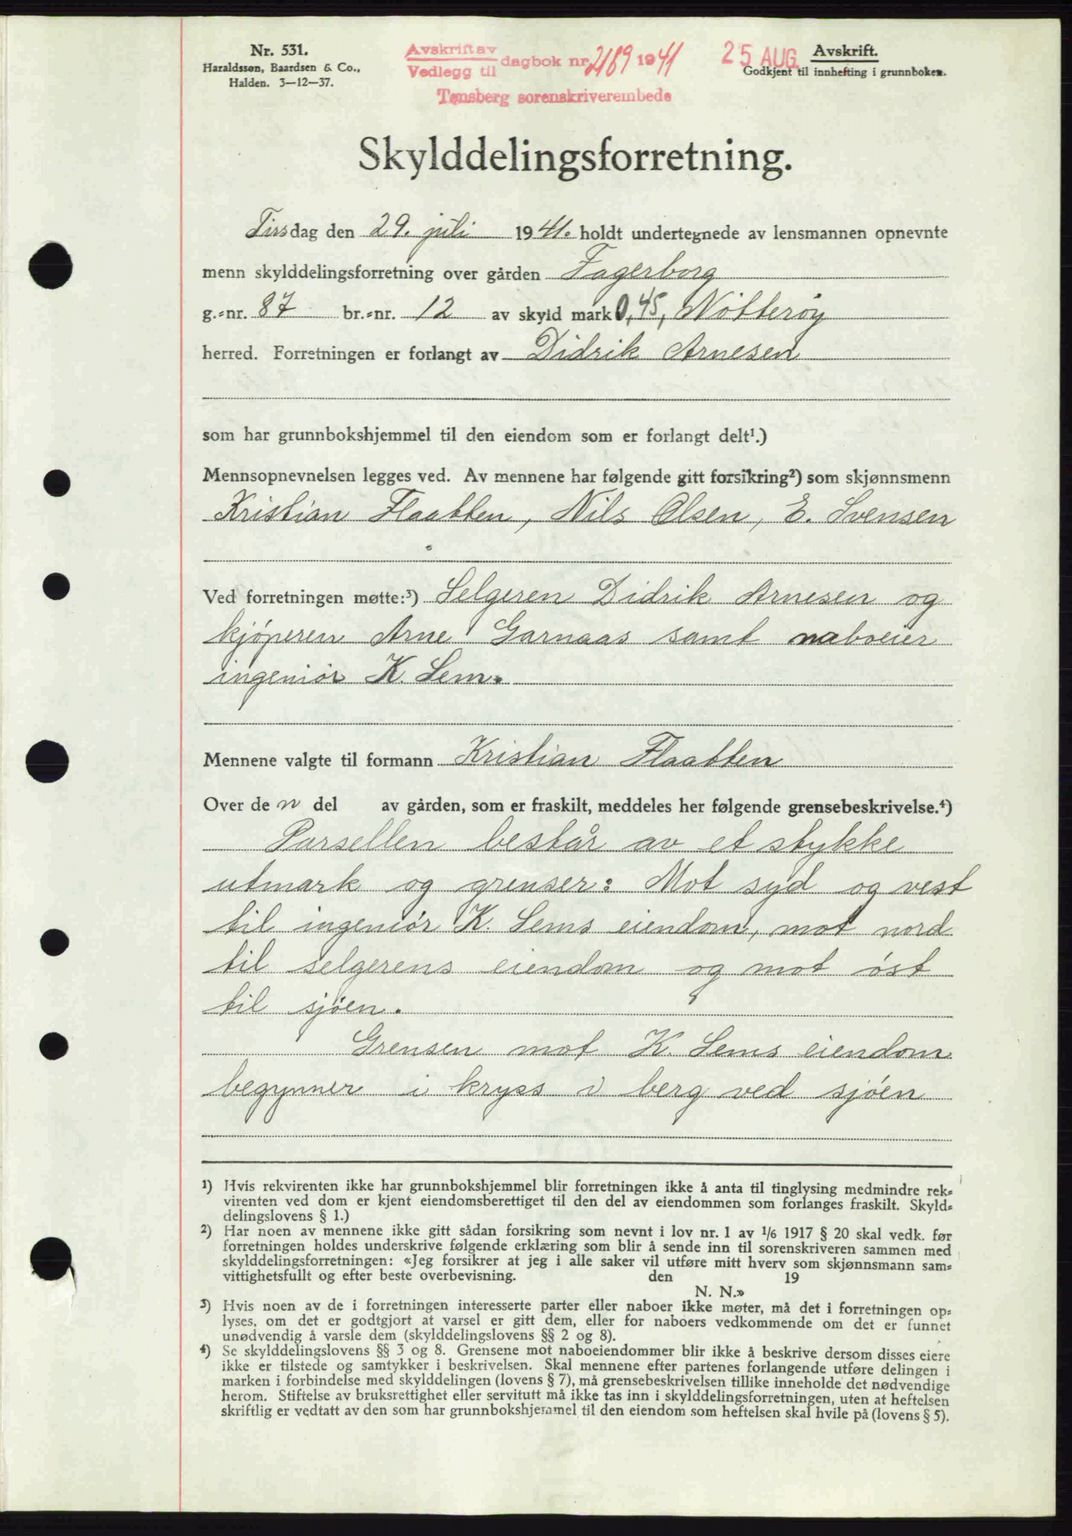 Nr. 531.
Haraldssøn, Baardsen & Co.,
Halden. 3—12—37.
Avskrift av
Vedlegg til dagbok nr. 2189 1941
Tønsberg sorenskriverembede
25 AUG.
Avskrift.
Godkjent til innhefting i grunnboken.
Skylddelingsforretning.
Tirsdag den 29. juli 1941. holdt undertegnede av lensmannen opnevnte
menn skylddelingsforretning over gården Fagerborg
g.-nr. 87 br.-nr. 12 av skyld mark 0,45, Nøtterøy
herred. Forretningen er forlangt av Didrik Arnesen
som har grunnbokshjemmel til den eiendom som er forlangt delt¹.)
Mennsopnevnelsen legges ved. Av mennene har følgende gitt forsikring²) som skjønnsmenn
Kristian Flaatten, Nils Olsen, E. Svensen
Ved forretningen møtte:³) Selgeren Didrik Arnesen og
kjøperen Arne Garnaas samt naboeier
ingeniør K. Sem.
Mennene valgte til formann Kristian Flaatten
Over de n del av gården, som er fraskilt, meddeles her følgende grensebeskrivelse.⁴)
Parsellen består av et stykke
utmark og grenser: Mot syd og vest
til ingeniør K. Sems eiendom, mot nord
til selgerens eiendom og mot øst
til sjøen.
Grensen mot K. Sems eiendom
begynner i kryss i berg ved sjøen
¹) Hvis rekvirenten ikke har grunnbokshjemmel blir forretningen ikke å anta til tinglysing medmindre rek-
virenten ved dom er kjent eiendomsberettiget til den del av eiendommen som forlanges fraskilt. Skyld-
delingslovens § 1.)
²) Har noen av mennene ikke gitt sådan forsikring som nevnt i lov nr. 1 av 1/6 1917 § 20 skal vedk. før
forretningen holdes underskrive følgende erklæring som blir å sende inn til sorenskriveren sammen med
skylddelingsforretningen: «Jeg forsikrer at jeg i alle saker vil utføre mitt hverv som skjønnsmann sam-
vittighetsfullt og efter beste overbevisning. den 19
N. N.»
³) Hvis noen av de i forretningen interesserte parter eller naboer ikke møter, må det i forretningen op-
lyses, om det er godtgjort at varsel er gitt dem, eller for naboers vedkommende om det er funnet
unødvendig å varsle dem (skylddelingslovens §§ 2 og 8).
⁴) Se skylddelingslovens §§ 3 og 8. Grensene mot naboeiendommer blir ikke å beskrive dersom disses eiere
ikke er tilstede og samtykker i beskrivelsen. Skal mennene efter partenes forlangende utføre delingen i
marken i forbindelse med skylddelingen (lovens § 7), må grensebeskrivelsen tillike inneholde det nødvendige
herom. Stiftelse av bruksrettighet eller servitutt må ikke tas inn i skylddelingsforretningen, uten at heftelsen
skriftlig er vedtatt av den som har grunnbokshjemmel til den eiendom som heftelsen skal hvile på (lovens § 5).